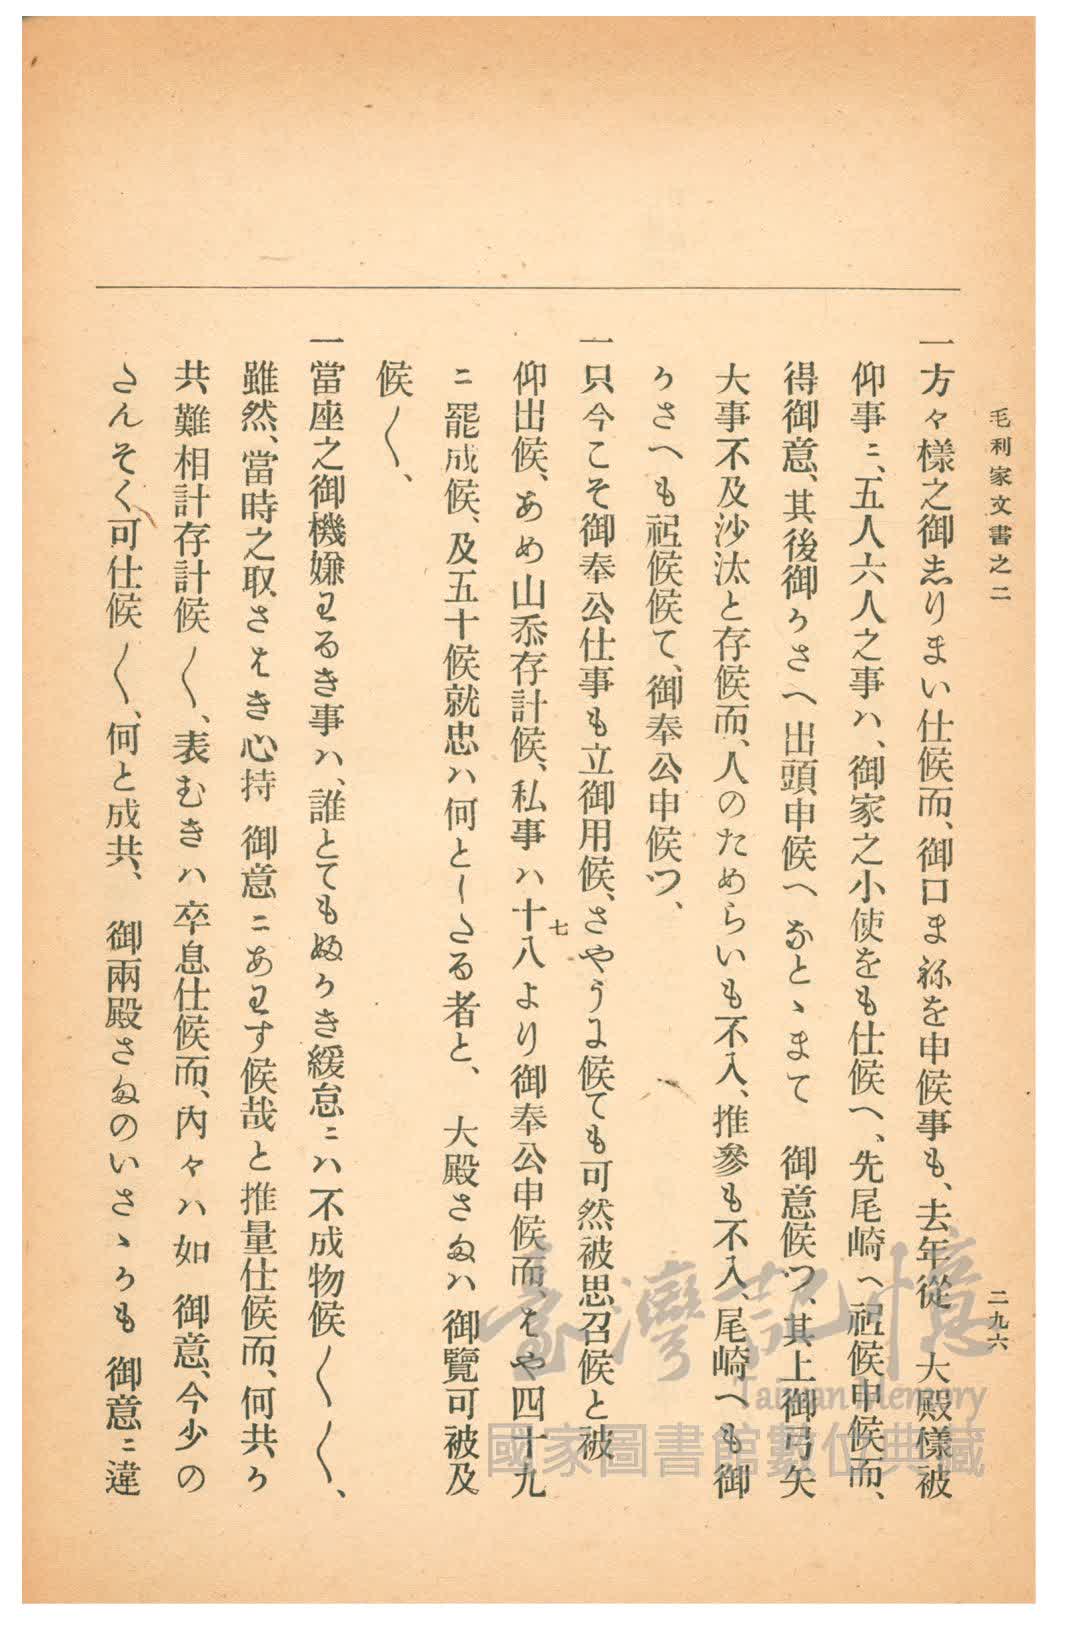 毛利家文書之二
二九六
一方々樣之御志りまい仕候而、御口まねを申候事も、去年從　大殿樣被
仰事ニ、五人六人之事ハ、御家之小使をも仕候へ、先尾崎へ祗候申候而、
得御意、其後御うさへ出頭申候へなとゝまて　御意候つ、其上御弓矢
大事不及沙汰と存候而、人のためらいも不入、推參も不入、尾崎へも御
うさへも祗候候て、御奉公申候つ、
一只今こそ御奉公仕事も立御用候、さやうに候ても可然被思召候と被
仰出候、あめ山忝存計候、私事ハ十八より御奉公申候而、はや四十九
七
ニ罷成候、及五十候就忠ハ何としたる者と、　大殿さまハ御覽可被及
候〱、
一當座之御機嫌わるき事ハ、誰とてもぬうき緩怠ニハ不成物候〱〱、
雖然、當時之取さはき心持　御意ニあわす候哉と推量仕候而、何共う
共難相計存計候〱、表むきハ卒息仕候而、內々ハ如　御意、今少の
さんそく可仕候〱、何と成共、　御兩殿さまのいさゝうも　御意ニ違
臺灣記憶
Taiwan Memory
國家圖書館數位典藏